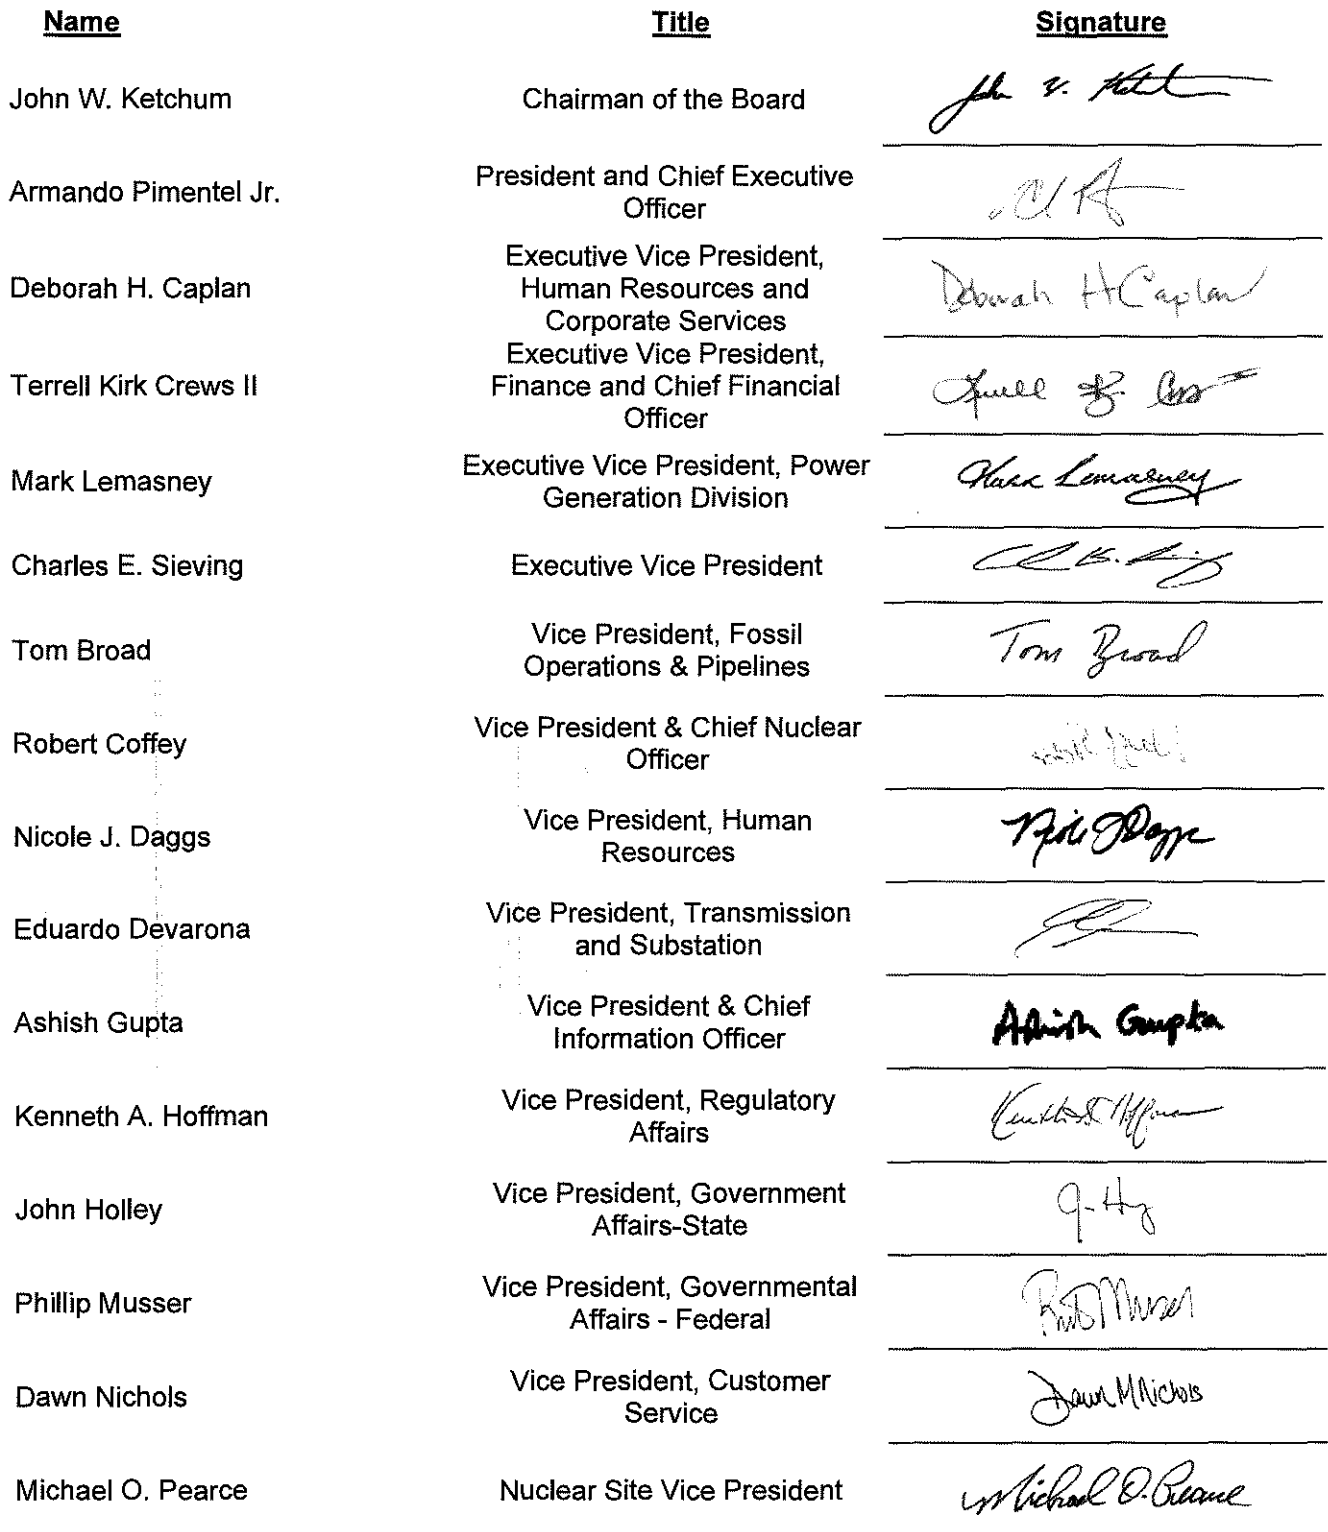 Name Title Signature
John W. Ketchum Chairman of the Board
Armando Pimentel Jr. President and Chief Executive
Officer
Deborah H. Caplan Executive Vice President,
Human Resources and
Corporate Services
Deborah H Caplan
Terrell Kirk Crews II Executive Vice President,
Finance and Chief Financial
Officer
Mark Lemasney Executive Vice President, Power
Generation Division
Mark Lemasney
Charles E. Sieving Executive Vice President
Tom Broad Vice President, Fossil
Operations & Pipelines
Tom Broad
Robert Coffey Vice President & Chief Nuclear
Officer
Nicole J. Daggs Vice President, Human
Resources
Eduardo Devarona Vice President, Transmission
and Substation
Ashish Gupta Vice President & Chief
Information Officer
Ashish Gupta
Kenneth A. Hoffman Vice President, Regulatory
Affairs
John Holley Vice President, Government
Affairs-State
Phillip Musser Vice President, Governmental
Affairs - Federal
Dawn Nichols Vice President, Customer
Service
Dawn M Nichols
Michael O. Pearce Nuclear Site Vice President Michael O. Pearce